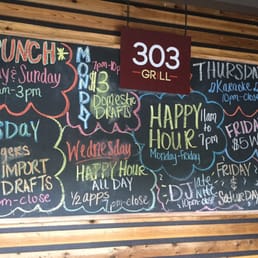 303
GRILL
PUNCH*
& Sunday
am-3pm
MONDAY
7pm-10
$3
Domestic
DRAFTS
THURSDAY
Karaoke
10pm-close
HAPPY
HOUR
11am
to
7pm
Monday-Friday
FRIDAY
$5 W
IMPORT
DRAFTS
-close
Wednesday
HAPPY HOUR
ALL DAY
1/2 apps
7pm-close
DJ
10pm-close
FRIDAY
&
SATURDAY